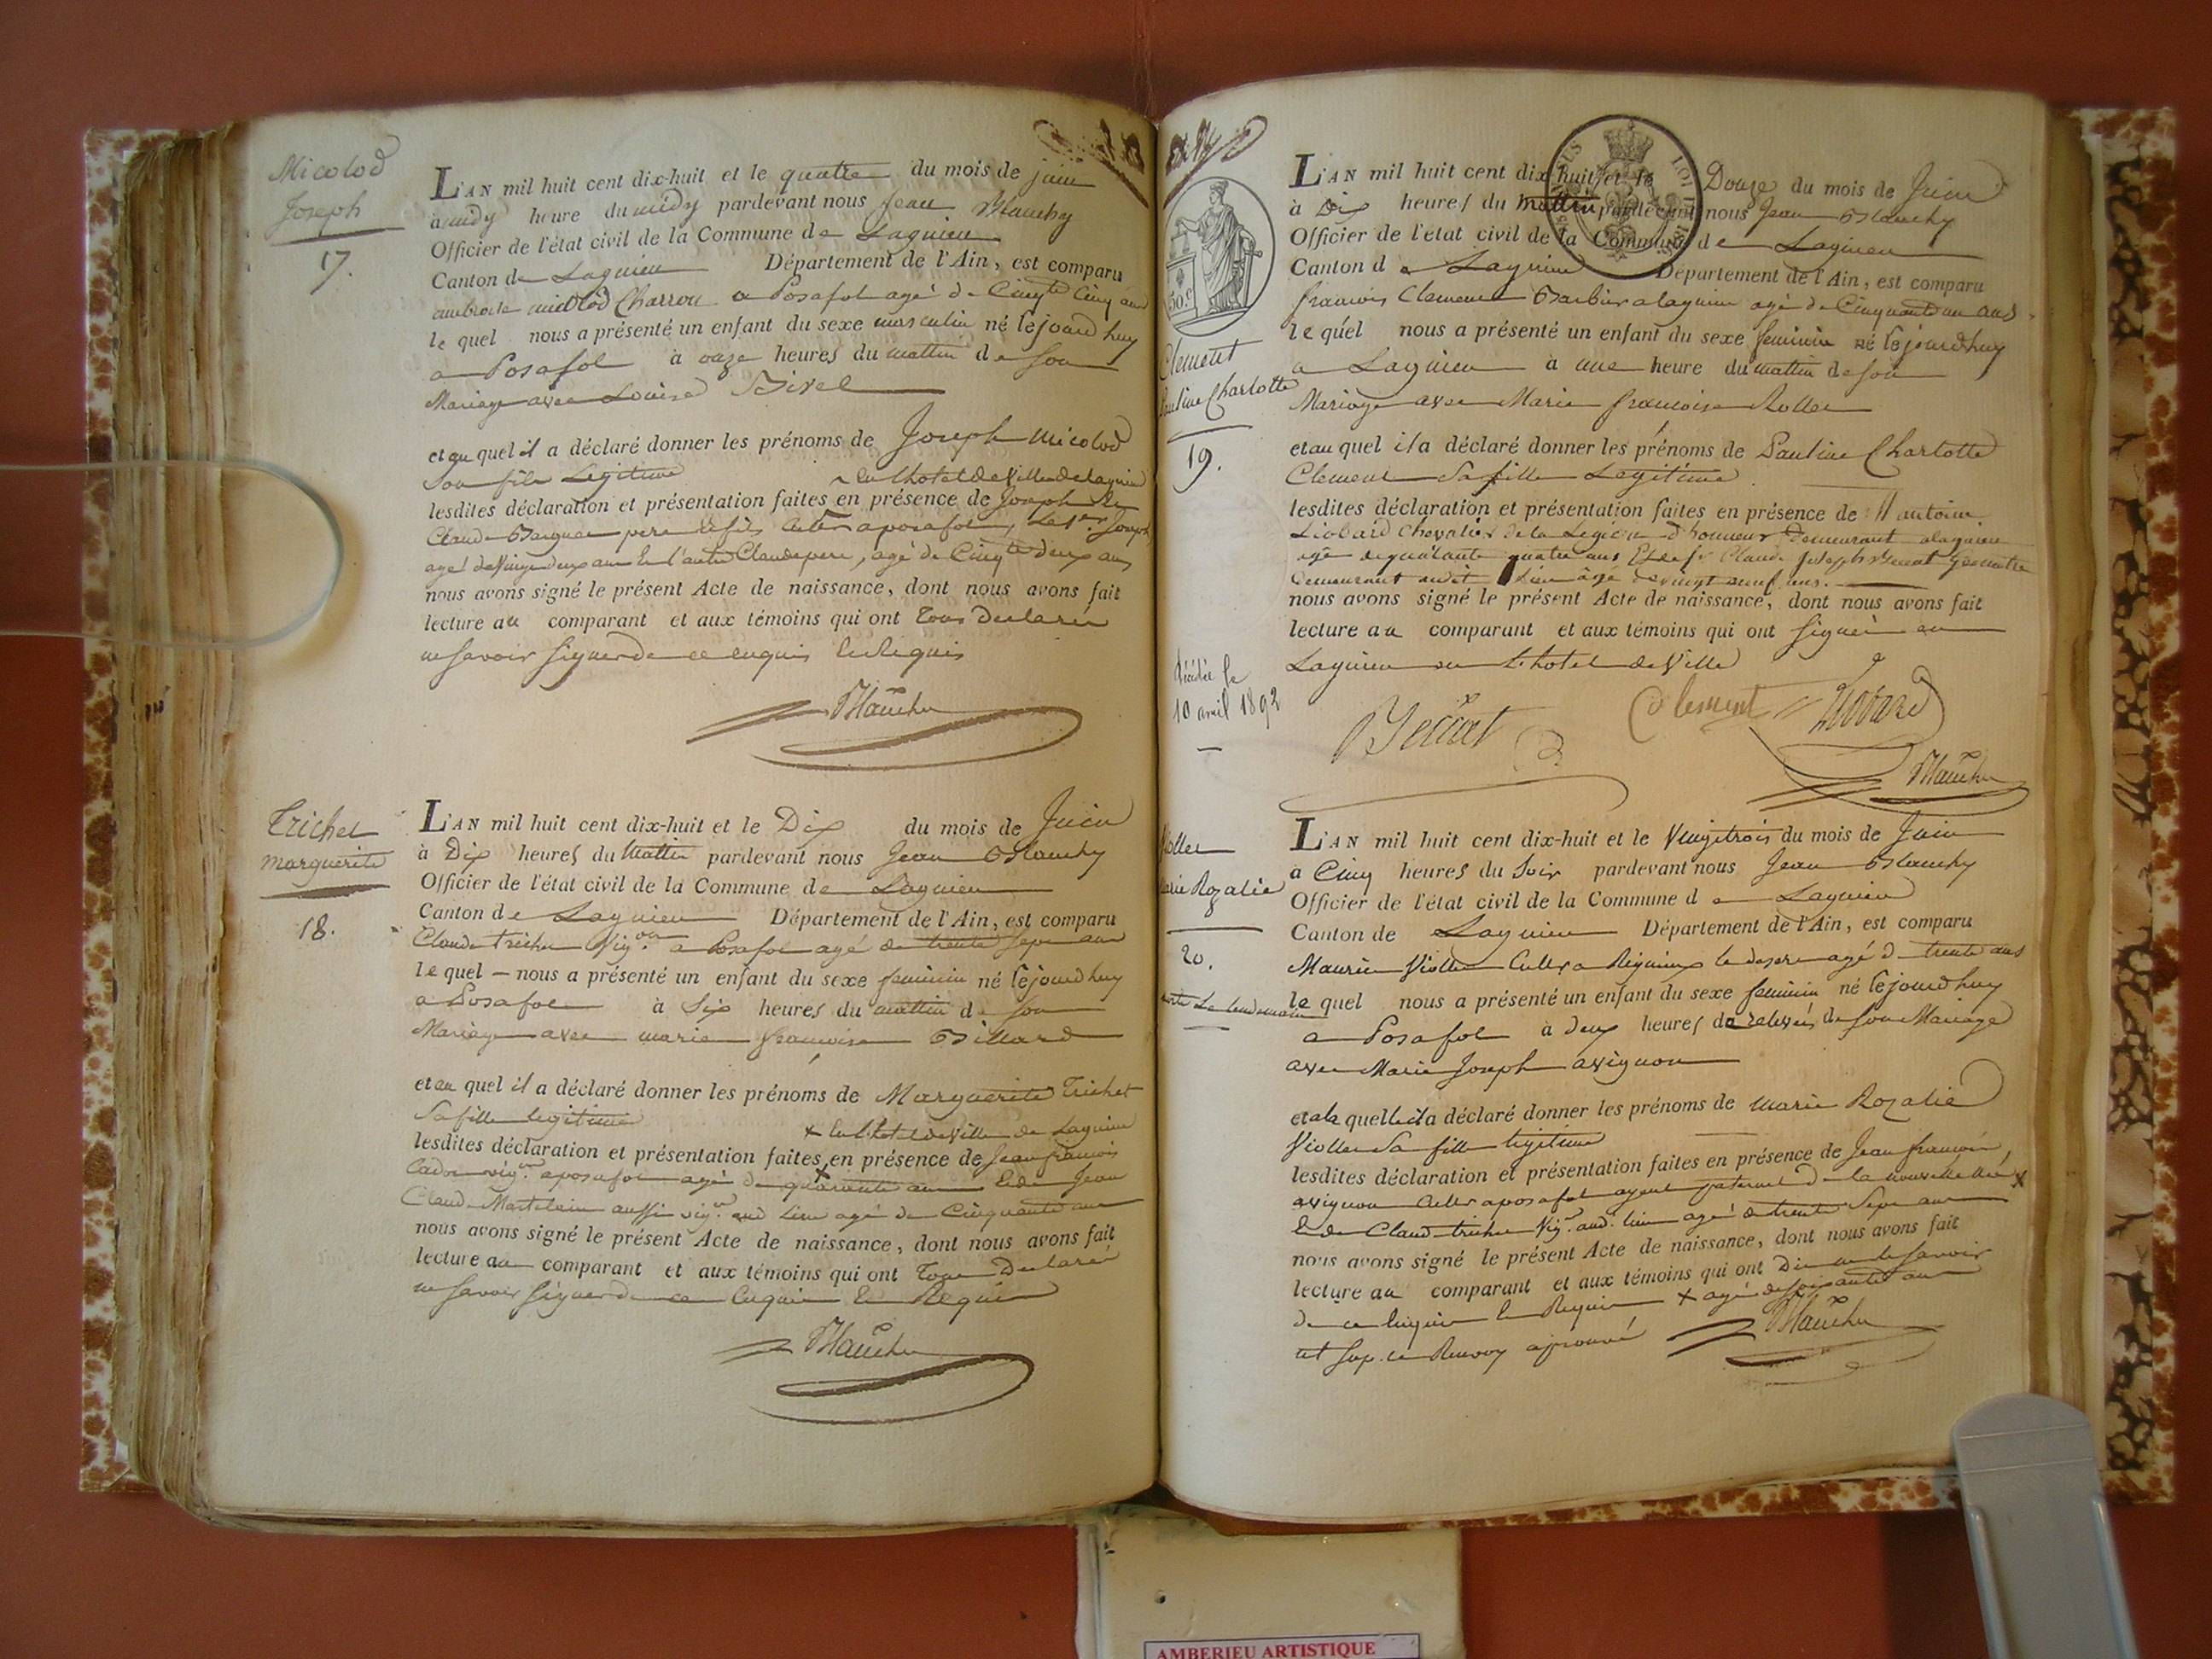 Micolod
Joseph
17.
L'AN mil huit cent dix-huit et le quatre du mois de juin
à midy heure du midy pardevant nous Jean Blanchy
Officier de l'état civil de la Commune de Lagnieu
Canton de Lagnieu Département de l'Ain, est comparu
micolod Charron a Posafol agé de Cinqte Cinq ans
le quel nous a présenté un enfant du sexe masculin né cejourdhuy
a Posafol à onze heures du mattin de son
Mariage avec Louise
et au quel il a déclaré donner les prénoms de Joseph Micolod
Son fils Legitime
en lhotel de Ville de Lagnieu
lesdites déclaration et présentation faites en présence de Joseph
Claude pere et fils a posafol, Joseph
agé de Vingt deux ans et l'autre Claude pere, agé de Cinqte deux ans
nous avons signé le présent Acte de naissance, dont nous avons fait
lecture au comparant et aux témoins qui ont tous Declaré
ne Savoir signer de ce enquis et Requis
Blanchy
Trichet
marguerite
18.
L'AN mil huit cent dix-huit et le Dix du mois de Juin
à Dix heures du Mattin pardevant nous Jean Blanchy
Officier de l'état civil de la Commune de Lagnieu
Canton de Lagnieu Département de l'Ain, est comparu
Claude trichet Vigon a Posafol agé de trente sept ans
le quel nous a présenté un enfant du sexe feminin né cejourdhuy
a Posafol à Six heures du mattin de son
Mariage avec marie francoise Billard
et au quel il a déclaré donner les prénoms de Marguerite Trichet
Sa fille legitime
x en l'hotel de Ville de Lagnieu
lesdites déclaration et présentation faites x en présence de Jean francois
vigon a posafol agé de quarante ans et de Jean
Claude aussi vigon aud Lieu agé de Cinquante ans
nous avons signé le présent Acte de naissance, dont nous avons fait
lecture au comparant et aux témoins qui ont tous Declaré
ne Savoir Signer de ce Enquis et Requis
Blanchy
LOI
50 c
Clement
Pauline Charlotte
19.
décédée le
10 avril 1892
L'AN mil huit cent dix-huit et le Douze du mois de Juin
à Dix heures du mattin pardevant nous Jean Blanchy
Officier de l'etat civil de la Commune de Lagnieu
Canton de Lagnieu Département de l'Ain, est comparu
francois Clement Barbier a lagnieu agé de Cinquante un ans
le quel nous a présenté un enfant du sexe feminin né cejourdhuy
a Lagnieu à une heure du mattin de son
Mariage avec Marie francoise Rollet
et au quel il a déclaré donner les prénoms de Pauline Charlotte
Clement Sa fille Legitime
lesdites déclaration et présentation faites en présence de M antoine
Liobard Chevalier de la Legion d'honneur Demeurant a lagnieu
agé de quarante quatre ans Et de sr Claude Joseph Geometre
Demeurant audit Lieu âgé de vingt neuf ans.
nous avons signé le présent Acte de naissance, dont nous avons fait
lecture au comparant et aux témoins qui ont signé
Lagnieu en L'hotel de Ville
Clement Liobard
Blanchy
Viollet
Marie Rozalie
20.
morte Le lendemain
L'AN mil huit cent dix-huit et le Vingt trois du mois de Juin
à Cinq heures du Soir pardevant nous Jean Blanchy
Officier de l'état civil de la Commune de Lagnieu
Canton de Lagnieu Département de l'Ain, est comparu
Maurice Viollet agé de trente ans
le quel nous a présenté un enfant du sexe feminin né cejourdhuy
a Posafol à deux heures de relevée de son Mariage
avec Marie Joseph avignon
et a la quelle il a déclaré donner les prénoms de Marie Rozalie
Viollet Sa fille legitime
lesdites déclaration et présentation faites en présence de Jean francois
avignon a posafol ayeul paternel de la nouvelle née x
et de Claude trichet Vigon aud. lieu agé de trente Sept ans
nous avons signé le présent Acte de naissance, dont nous avons fait
lecture au comparant et aux témoins qui ont Dit ne le savoir
de ce Enquis et Requis x agé de soixante ans
Renvoy aprouvé Blanchy
AMBERIEU ARTISTIQUE